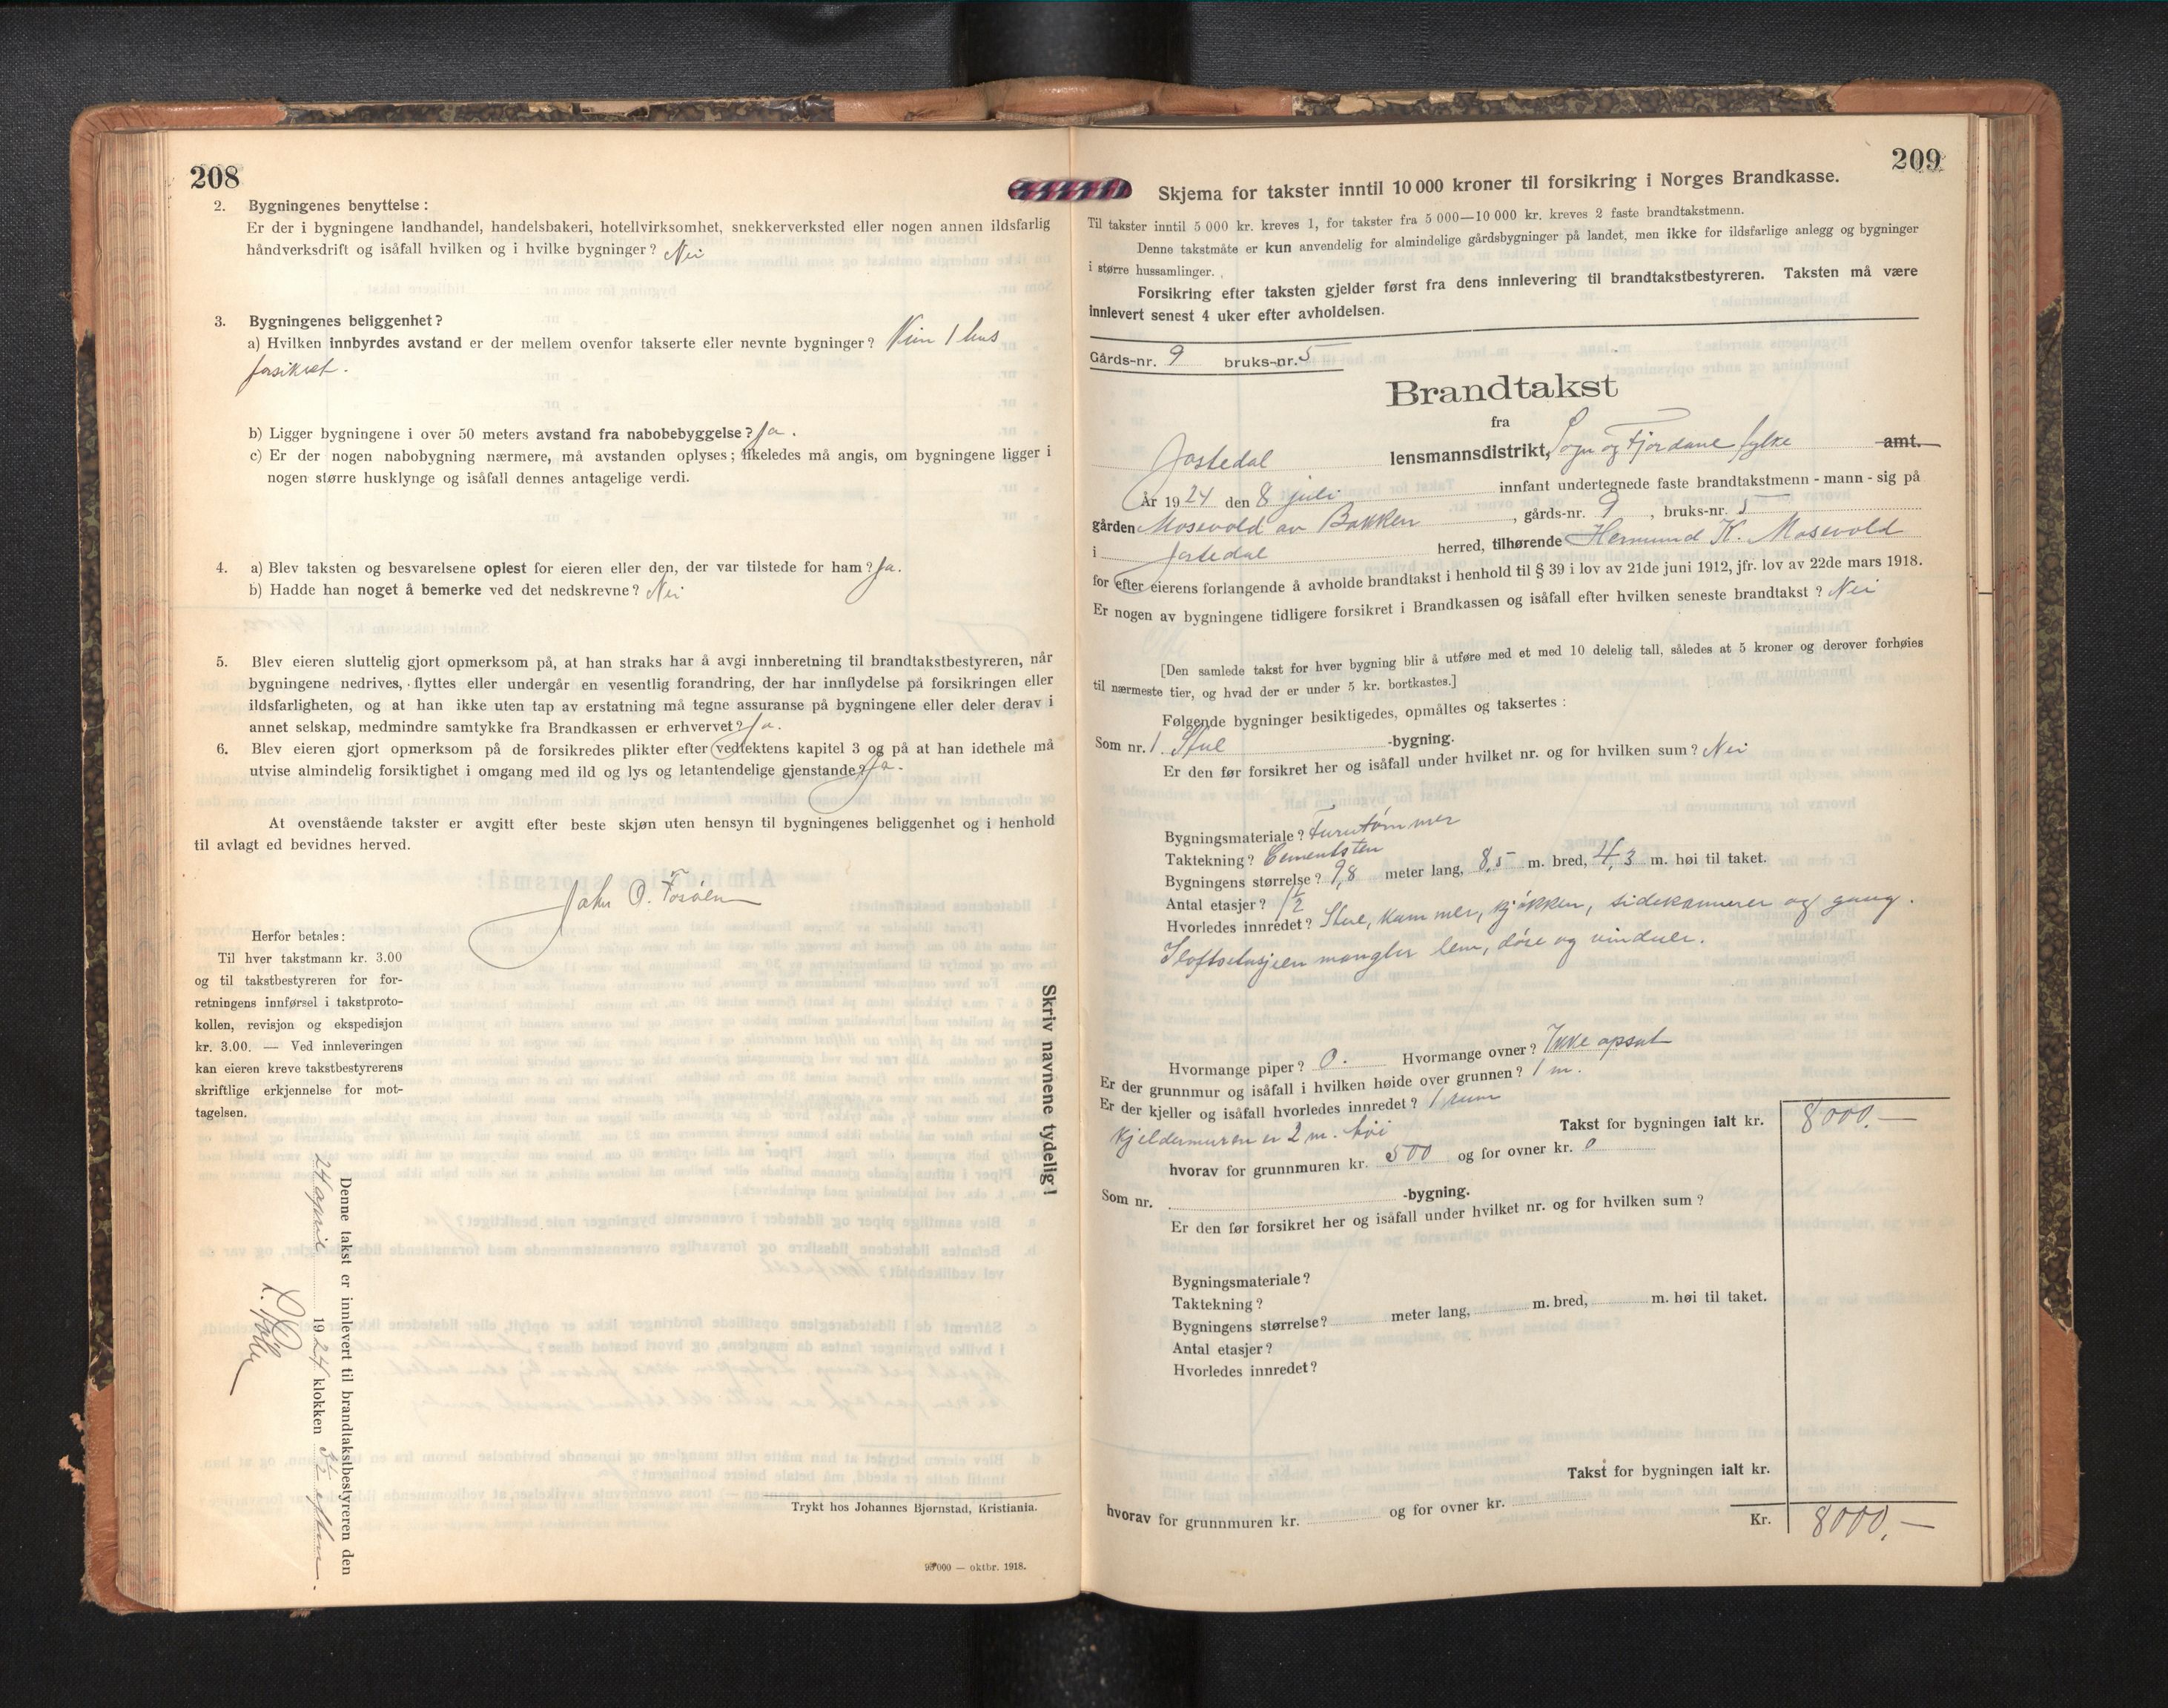 208
2. Bygningenes benyttelse :
Er der i bygningene landhandel, handelsbakeri, hotellvirksomhet, snekkerverksted eller nogen annen ildsfarlig
håndverksdrift og isåfall hvilken og i hvilke bygninger ? Nei
3. Bygningenes beliggenhet ?
a) Hvilken innbyrdes avstand er der mellem ovenfor takserte eller nevnte bygninger ? Kun 1 hus
forsikret.
b) Ligger bygningene i over 50 meters avstand fra nabobebyggelse ? Ja.
c) Er der nogen nabobygning nærmere, må avstanden oplyses ; likeledes må angis, om bygningene ligger i
nogen større husklynge og isåfall dennes antagelige verdi.
4. a) Blev taksten og besvarelsene oplest for eieren eller den, der var tilstede for ham ? Ja.
b) Hadde han noget å bemerke ved det nedskrevne ? Nei
5. Blev eieren sluttelig gjort opmerksom på, at han straks har å avgi innberetning til brandtakstbestyreren, når
bygningene nedrives, flyttes eller undergår en vesentlig forandring, der har innflydelse på forsikringen eller
ildsfarligheten, og at han ikke uten tap av erstatning må tegne assuranse på bygningene eller deler derav i
annet selskap, medmindre samtykke fra Brandkassen er erhvervet ? Ja.
6. Blev eieren gjort opmerksom på de forsikredes plikter efter vedtektens kapitel 3 og på at han idethele må
utvise almindelig forsiktighet i omgang med ild og lys og letantendelige gjenstande ? Ja.
At ovenstående takster er avgitt efter beste skjøn uten hensyn til bygningenes beliggenhet og i henhold
til avlagt ed bevidnes herved.
John O. Fosøen
Herfor betales :
Til hver takstmann kr. 3.00
og til takstbestyreren for for-
retningens innførsel i takstproto-
kollen, revisjon og ekspedisjon
kr. 3.00. — Ved innleveringen
kan eieren kreve takstbestyrerens
skriftlige erkjennelse for mot-
tagelsen.
Skriv navnene tydelig !
Denne takst er innlevert til brandtakstbestyreren den
24 april 1924 klokken 3½ efterm.
Trykt hos Johannes Bjørnstad, Kristiania.
90 000 — oktbr. 1918.
209
Skjema for takster inntil 10 000 kroner til forsikring i Norges Brandkasse.
Til takster inntil 5 000 kr. kreves 1, for takster fra 5 000—10 000 kr. kreves 2 faste brandtakstmenn.
Denne takstmåte er kun anvendelig for almindelige gårdsbygninger på landet, men ikke for ildsfarlige anlegg og bygninger
i større hussamlinger.
Forsikring efter taksten gjelder først fra dens innlevering til brandtakstbestyreren. Taksten må være
innlevert senest 4 uker efter avholdelsen.
Gårds-nr. 9 bruks-nr. 5
Brandtakst
fra
Jostedal lensmannsdistrikt, Sogn og Fjordane fylke amt.
År 1924 den 8 juli innfant undertegnede faste brandtakstmenn - mann - sig på
gården Mosevold av Bakken, gårds-nr. 9, bruks-nr. 5
i Jostedal herred, tilhørende Hermund K. Mosevold
for efter eierens forlangende å avholde brandtakst i henhold til § 39 i lov av 21de juni 1912, jfr. lov av 22de mars 1918.
Er nogen av bygningene tidligere forsikret i Brandkassen og isåfall efter hvilken seneste brandtakst ? Nei
[Den samlede takst for hver bygning blir å utføre med et med 10 delelig tall, således at 5 kroner og derover forhøies
til nærmeste tier, og hvad der er under 5 kr. bortkastes.]
Følgende bygninger besiktigedes, opmåltes og taksertes :
Som nr. 1. Stue -bygning.
Er den før forsikret her og isåfall under hvilket nr. og for hvilken sum ? Nei
Bygningsmateriale ? Furutømmer
Taktekning ? Cementsten
Bygningens størrelse ? 9,8 meter lang, 8,5 m. bred, 4,3 m. høi til taket.
Antal etasjer ? 1½
Hvorledes innredet ? Stue, kammer, kjøkken, sidekammer og gang.
I loftsetasjeen mangler lem, døre og vinduer.
Hvormange piper ? 0. Hvormange ovner ? Ikke opsat
Er der grunnmur og isåfall i hvilken høide over grunnen ? 1 m.
Er der kjeller og isåfall hvorledes innredet ? 1 rum
Kjeldermuren er 2 m. høi
Takst for bygningen ialt kr. 8000.—
hvorav for grunnmuren kr. 500 og for ovner kr. 0
Som nr. -bygning.
Er den før forsikret her og isåfall under hvilket nr. og for hvilken sum ?
Bygningsmateriale ?
Taktekning ?
Bygningens størrelse ? meter lang, m. bred, m. høi til taket.
Antal etasjer ?
Hvorledes innredet ?
Takst for bygningen ialt kr.
hvorav for grunnmuren kr. og for ovner kr.
Kr. 8000.—